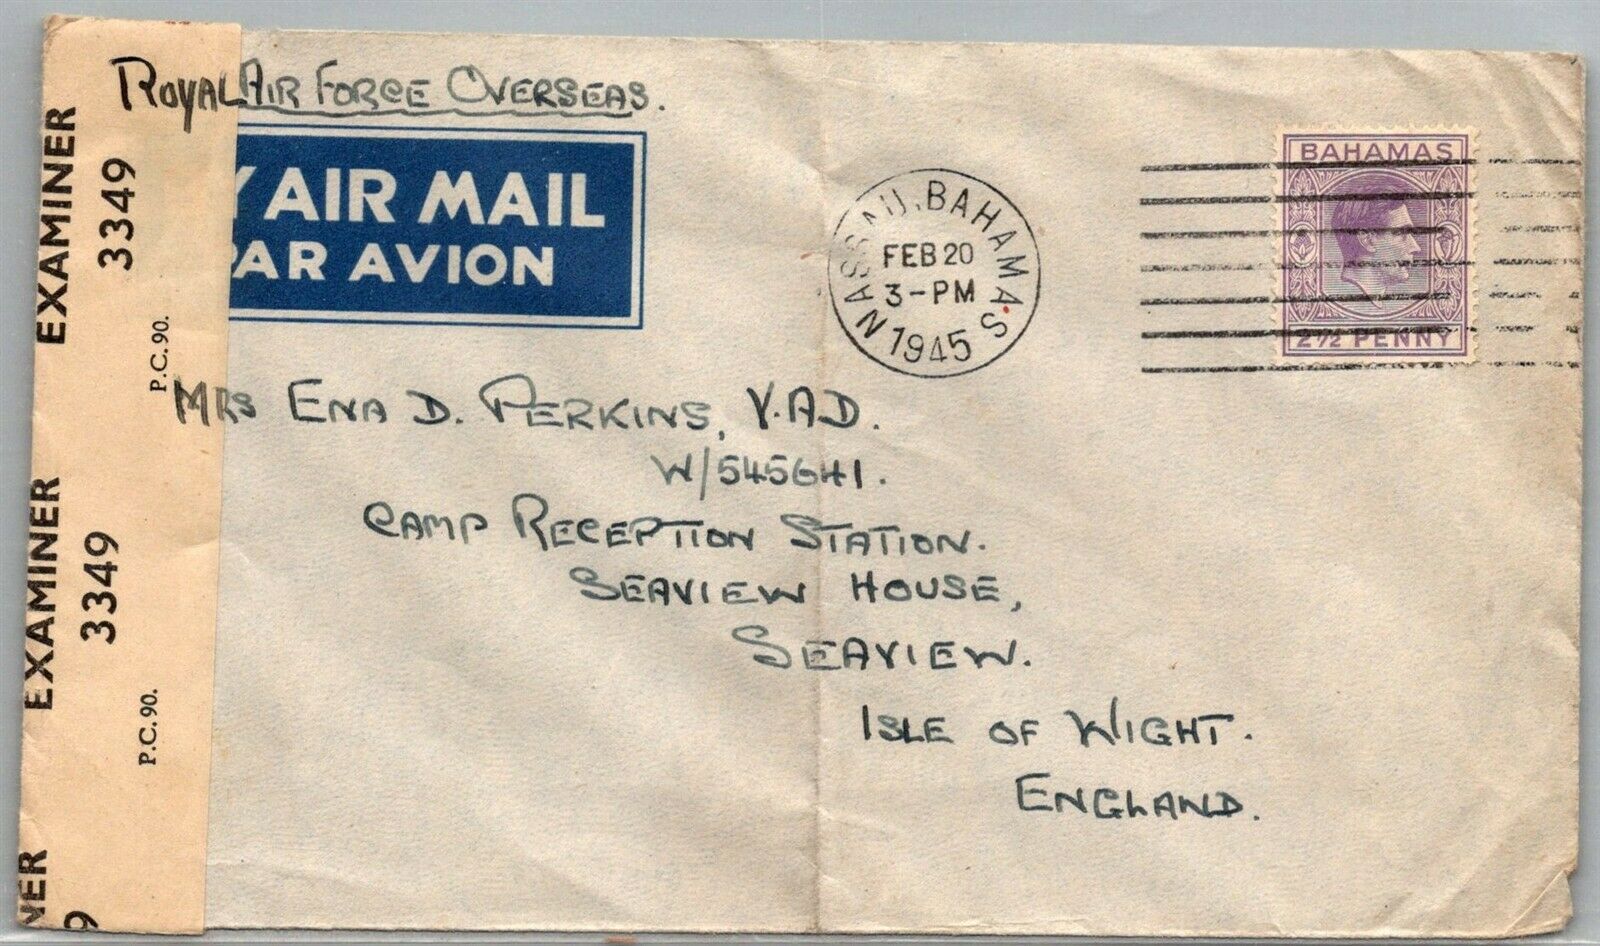 ROYAL AIR FORCE OVERSEAS.
EXAMINER 3349
P.C. 90.
EXAMINER 3349
P.C. 90.
NER
9
Y AIR MAIL
PAR AVION
NASSAU, BAHAMAS.
FEB 20
3-PM
1945
BAHAMAS
2½ PENNY
MRS ENA D. PERKINS, V.A.D.
W/545641.
CAMP RECEPTION STATION.
SEAVIEW HOUSE,
SEAVIEW.
ISLE OF WIGHT.
ENGLAND.